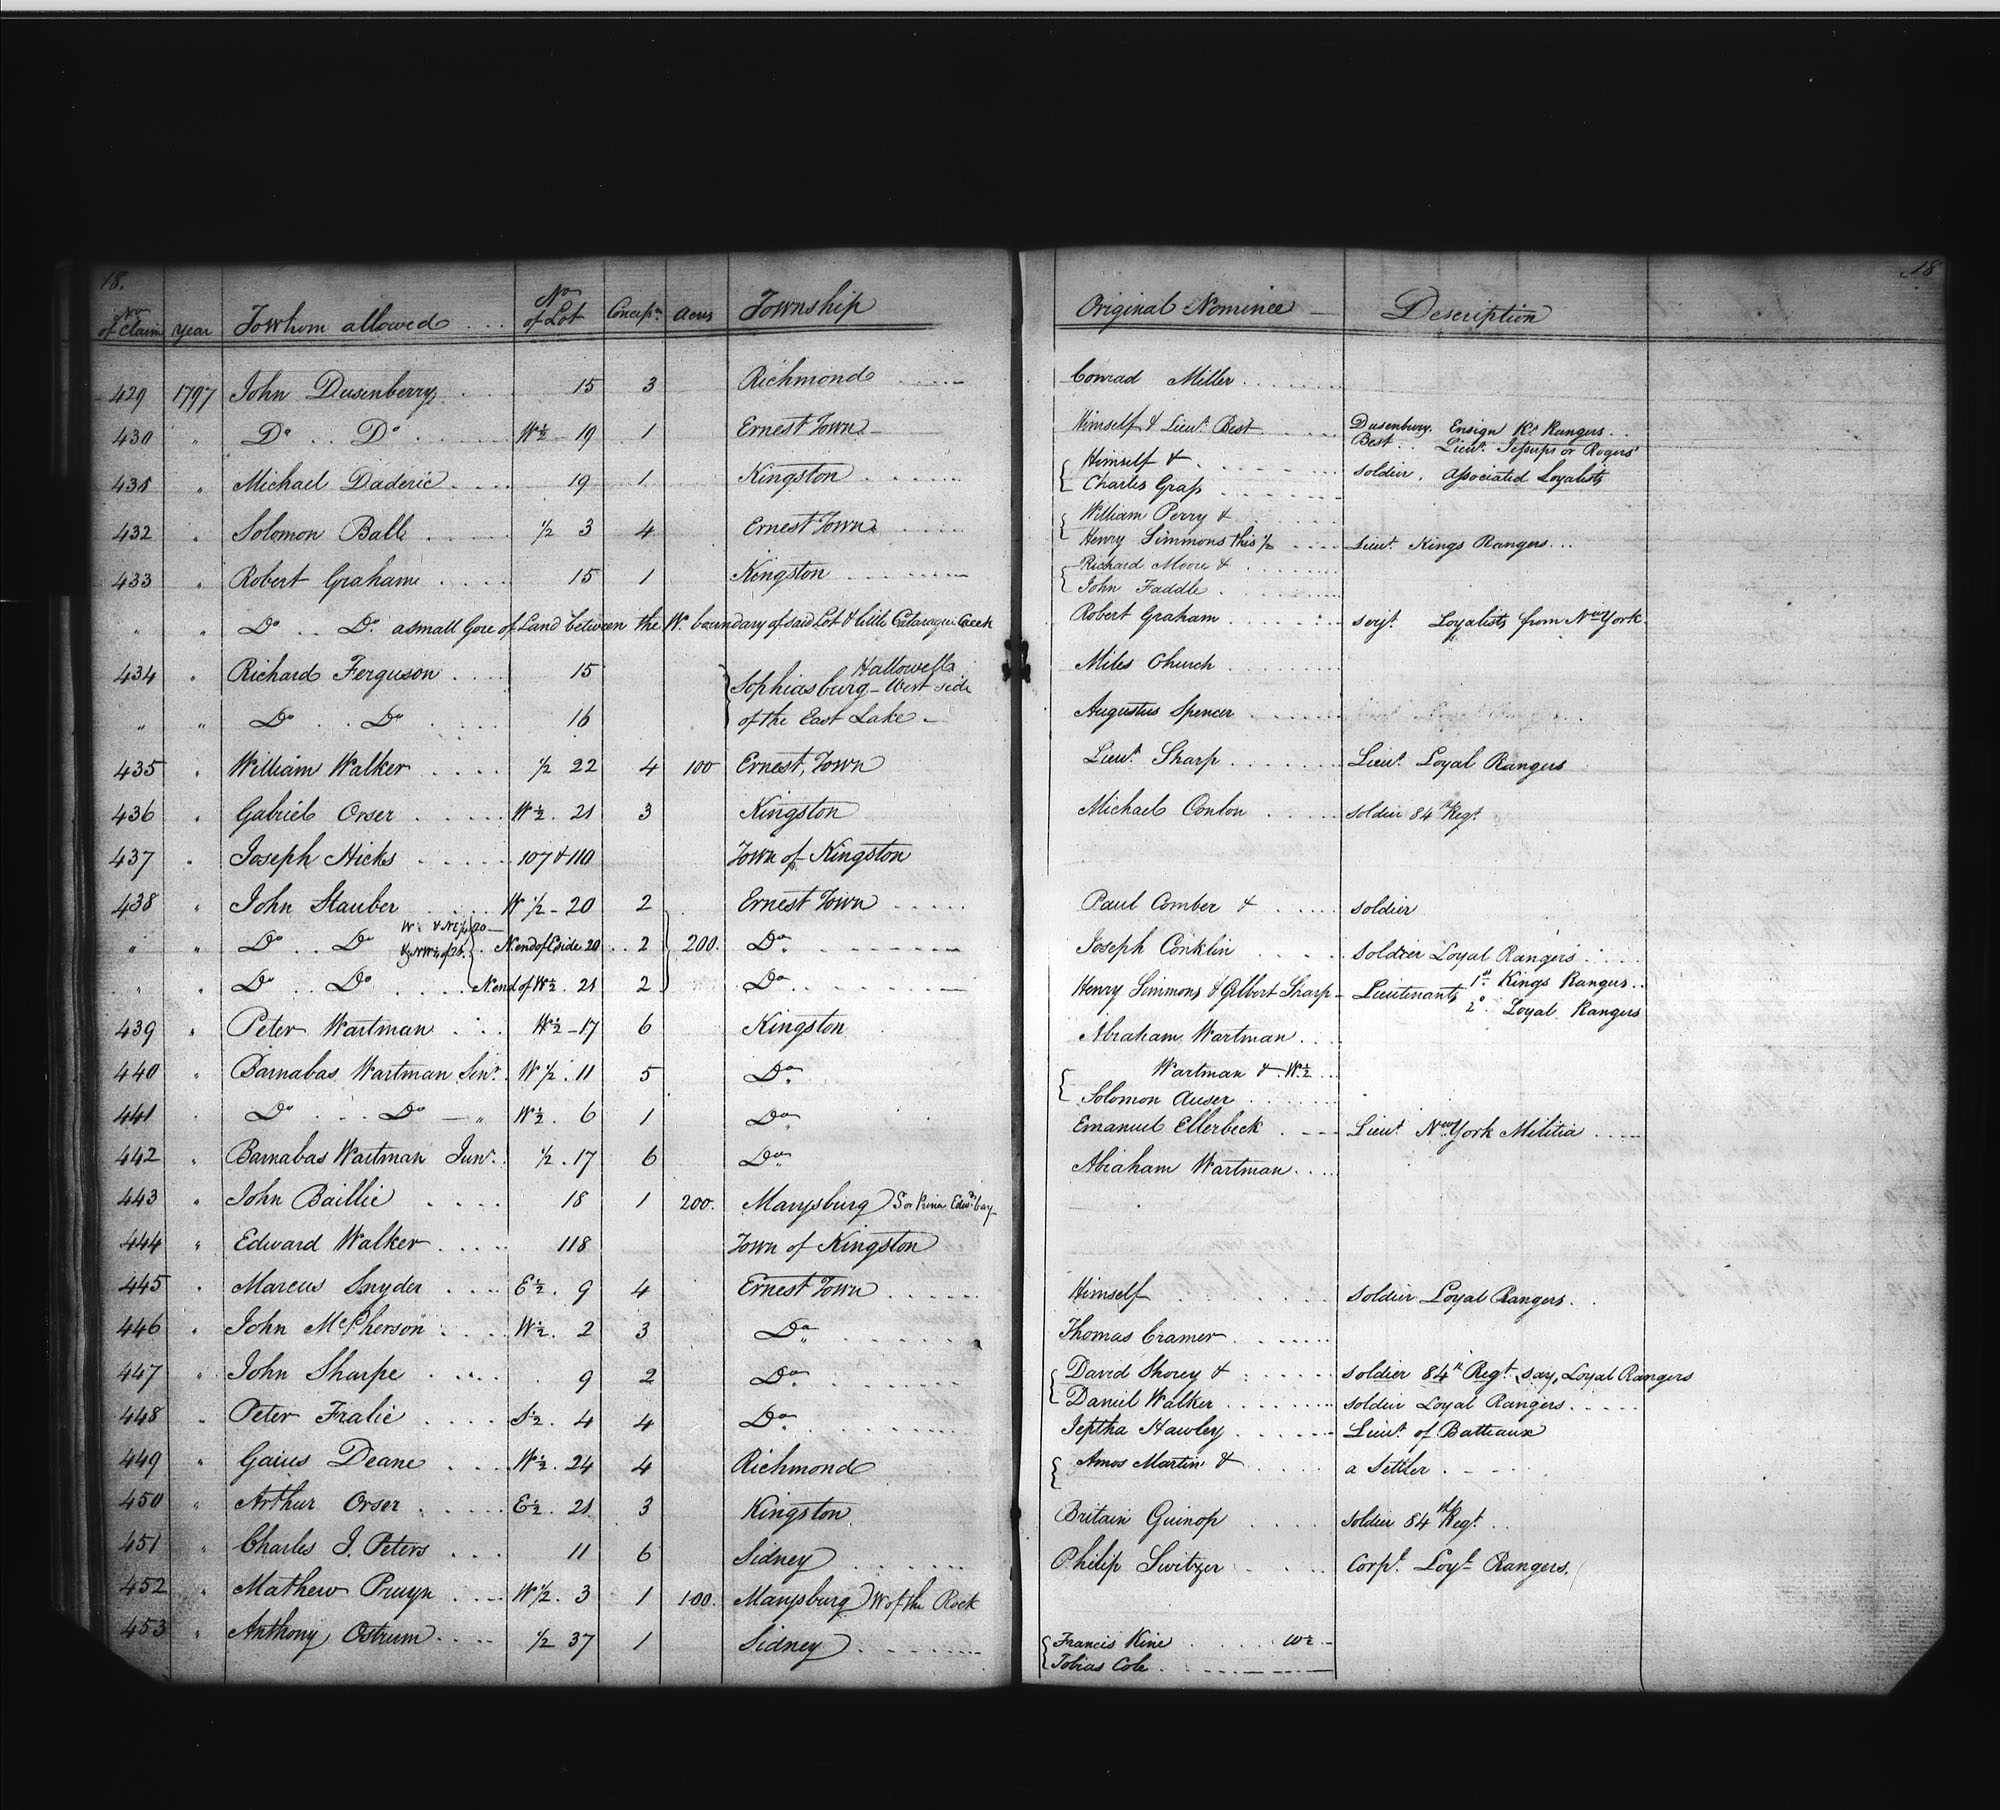 18.
No of Claim Year To whom allowed No of Lot Concessn Acres Township
429 1797 John Dusenberry 15 3 Richmond
430 " Do Do W½ 19 1 Ernest Town
431 " Michael Daderic 19 1 Kingston
432 " Solomon Ball ½ 3 4 Ernest Town
433 " Robert Graham 15 1 Kingston
" " Do Do a small Gore of Land between the Wn boundary of said Lot & little Cataraqui Creek
434 " Richard Ferguson 15 Hallowell
Sophiasburg - West side
" " Do Do 16 of the East Lake
435 " William Walker ½ 22 4 100 Ernest Town
436 " Gabriel Orser W½ 21 3 Kingston
437 " Joseph Hicks 107 & 110 Town of Kingston
438 " John Stauber W ½ 20 2 Ernest Town
" " Do Do N end of E side 20 2 200 Do
" " Do Do N end of W½ 21 2 Do
439 " Peter Wartman W½ 17 6 Kingston
440 " Barnabas Wartman Senr W ½ 11 5 Do
441 " Do Do " W½ 6 1 Do
442 " Barnabas Wartman Junr ½ 17 6 Do
443 " John Baillie 18 1 200 Marysburg S on Prince Edwd bay
444 " Edward Walker 118 Town of Kingston
445 " Marcus Snyder E½ 9 4 Ernest Town
446 " John McPherson W½ 2 3 Do
447 " John Sharpe 9 2 Do
448 " Peter Fralic S½ 4 4 Do
449 " Gaius Deane W½ 24 4 Richmond
450 " Arthur Orser E½ 21 3 Kingston
451 " Charles J. Peters 11 6 Sidney
452 " Mathew Pruyn W ½ 3 1 100 Marysburg W of the Rock
453 " Anthony Ostrum ½ 37 1 Sidney
18
Original Nominee Description
Conrad Miller
Himself & Lieut. Best Dusenbury. Ensign Ks Rangers
Best Lieut. Jessups or Rogers'
Himself &
Charles Grass soldier, Associated Loyalists
William Perry &
Henry Simmons this ½ Lieut. Kings Rangers
Richard Moore &
John Faddle
Robert Graham serjt. Loyalists from New York
Miles Church
Augustus Spencer
Lieut. Sharp Lieut. Loyal Rangers
Michael Conlon soldier 84th Regt.
Paul Comber & soldier
Joseph Conklin soldier Loyal Rangers
Henry Simmons & Gilbert Sharp Lieutenants 1st Kings Rangers
2o Loyal Rangers
Abraham Wartman
Wartman & W½
Solomon Auser
Emanuel Ellerbeck Lieut. New York Militia
Abraham Wartman
Himself soldier Loyal Rangers
Thomas Cramer
David Shorey & soldier 84th Regt. say, Loyal Rangers
Daniel Walker soldier Loyal Rangers
Jeptha Hawley Lieut. of Batteaux
Amos Martin & a Settler
Britain Guinop soldier 84th Regt.
Philip Switzer Corpl. Loyl Rangers.
Francis Kine W½
Tobias Cole